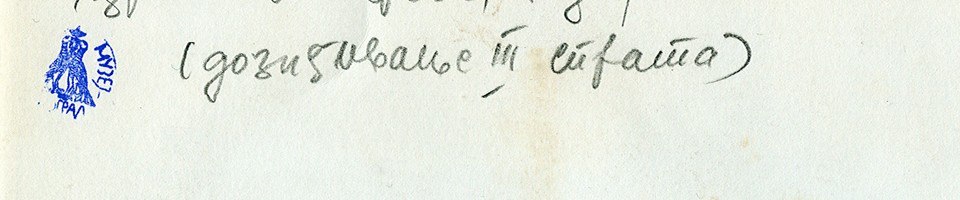 (дозиђивање III спрата)
МУЗЕЈ-
ГРАД